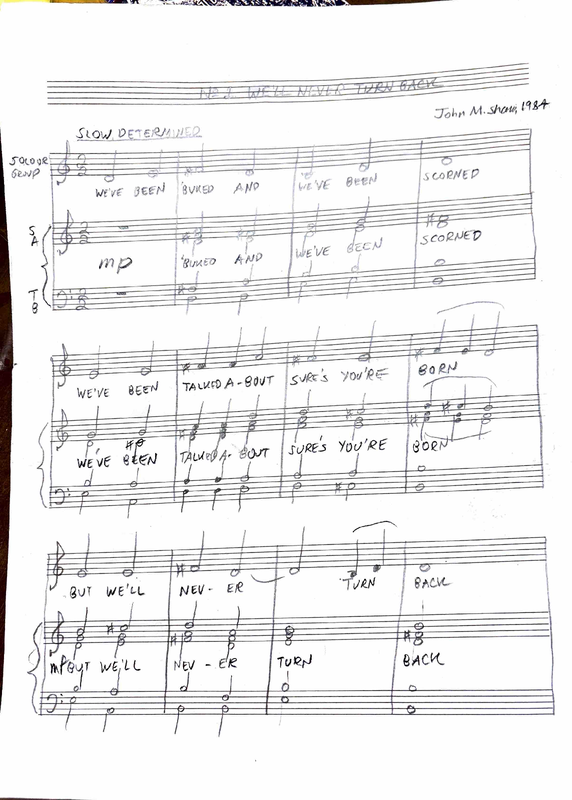 No 2 WE'LL NEVER TURN BACK
John M. Shaw, 1984
SLOW, DETERMINED
SOLO OR
GROUP
WE'VE BEEN 'BUKED AND WE'VE BEEN SCORNED
S
A
mp 'BUKED AND WE'VE BEEN SCORNED
T
B
WE'VE BEEN TALKED A-BOUT SURE'S YOU'RE BORN
WE'VE BEEN TALKED A-BOUT SURE'S YOU'RE BORN
BUT WE'LL NEV-ER TURN BACK
mf BUT WE'LL NEV-ER TURN BACK